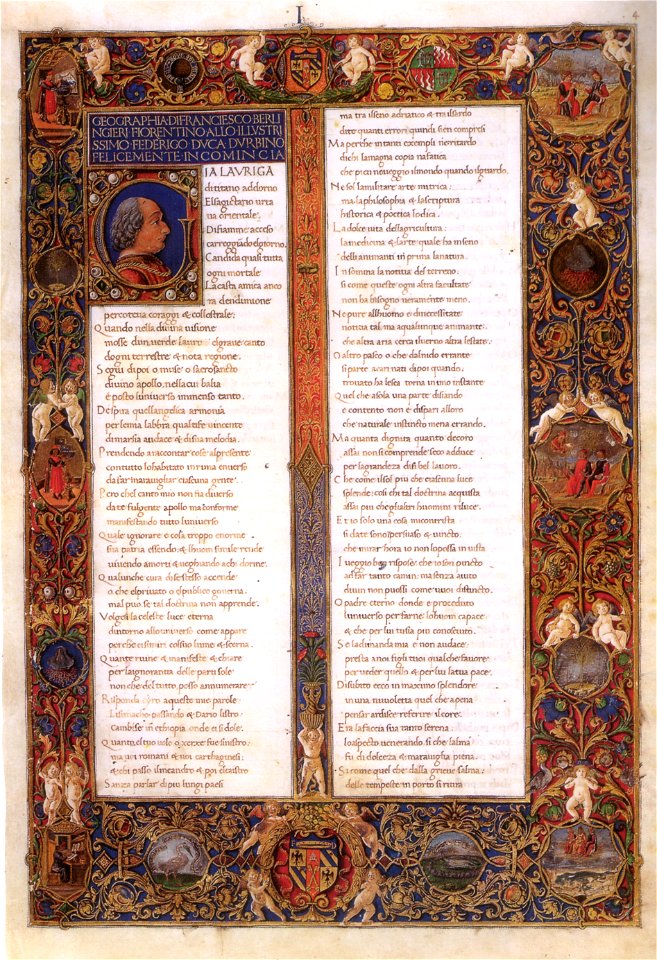 I
4
GEOGRAPHIA DI FRANCIESCO BERL
INGIERI FIORENTINO ALLO ILLVSTRI
SSIMO FEDERIGO DVCA DVRBINO
FELICEMENTE INCOMINCIA
GIA LAVRIGA
di titano addorno
El sagictario urta
ua orientale.
Di fiamme acceso
carreggia do elgiorno.
Candida quasi tutta
ogni mortale
La casta amica anco
ra
percoteua coraggi &
Quando nella diuina uisione
mosse dun uerde lauro elgraue canto
dogni terrestre & nota regione.
Seguidi poi o muse o sacrosancto
diuino apollo. nella cui balia
e posto luniuerso immenso tanto.
Despira quellangelica armonia
per le mia labbra. qual
di marsia audace & dsua melodia.
Prendendo a raccontar cose alpresente
con tutto lo habitato in rima
da far marauigliar ciascuna gente.
Pero chel canto mio non fia diuerso
da te fulgente apollo ma conforme
manifestando tutto luniuerso
Quale ignorare e cosa troppo enorme
sua patria essendo. & lhuom simile rende
uiuendo a morti & ueghiando a chi dorme.
Qualunche cura disestesso accende
o che elpriuato o elpublico gouerna.
mal puo. se tal doctrina non apprende.
Volgi la celeste luce eterna
dintorno allo uniuerso come appare
perche
Quante ruine & manifeste & chiare
per la ignorantia delle parti sole
non che del tutto. posso annumerare
Risponda Cyro a queste mie parole
Lisimacho passando & Dario listro
Cambise in ethiopia onde ei si dole.
Quanto el tuo uolo o xerxe fue sinistro
ma uoi romani & uoi carthaginesi
& chi passo & poi
Sanza parlar di piu lunghi paesi
ma tra ilseno adriatico & tra ilsardo
date quanti errori quindi sien compresi
Ma perche in tanti exempli
dichi lamagna copia
che pica noueggio ilmondo quando ilguardo.
Ne sol la militare arte nutrica
ma la philosophia & lascriptura
historica & poetica lo dica.
La dolce uita dellagricultura
la medicina & larte quale ha in seno
delli animanti in prima la natura.
In somma la notitia del terreno
si come queste ogni altra facultate
non ha bisogno ueramente meno.
Ne pure allhuomo e di necessitate
notitia tal. ma a qualunque animante.
che altra aria cerca iluerno altra lestate.
O altro pasco o che
si parte
trouato ha lesca torna in uno instante
Quel che asola una parte disiando
e contento non e dispari alloro
che naturale instincto mena errando.
Ma quanta dignita quanto decoro
assai non si comprende se co adduce
per la grandeza di si bel lauoro.
Che come ilsol piu che ciascuna luce
splende: cosi chi tal doctrina acquista
assai piu che glialtri huomini riluce.
Et io solo una cosa
si da te sono ipersuaso & uincto
che mirar hora io non lo possa in uista
I ueggio ben rispose: che io son puncto
ad far tanto camin. ma senza aiuto
duun non puossi come uuoi distincto.
O padre eterno donde e proceduto
luniuerso per farne lo huom capace
& che per lui tu sia piu conosciuto.
Se la dimanda mia e non audace:
presta a noi figli tuoi qualche fauore
per ueder quello & per lui la tua pace.
Di subito ecco un maximo splendore
in una nuuoletta quel che apena
pensar ardisce referire il core.
Era la faccia sua tanto serena
lo aspecto uenerando si che lalma
fu di dolceza & marauiglia piena.
Si come quel che dalla graue salma
delle tempeste in porto si